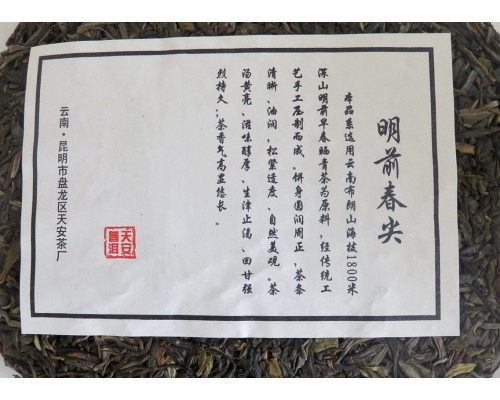 明前春尖
本品系选用云南布朗山海拔1800米
深山明前早春晒青茶为原料,经传统工
艺手工压制而成。饼身圆润周正,茶条
清晰、油润,松紧适度、自然美观。茶
汤黄亮、滋味醇厚、生津止渴、回甘强
烈持久;茶香气高显悠长。
天安
普洱
云南·昆明市盘龙区天安茶厂